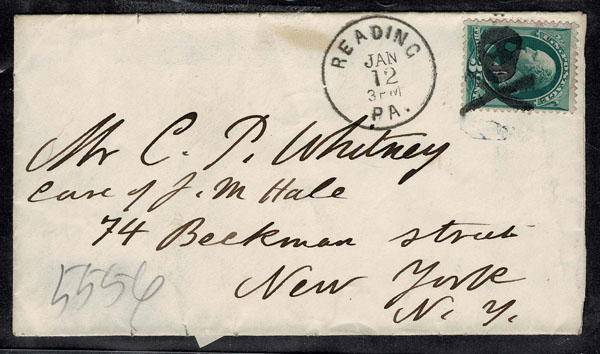 READING
JAN
12
3PM
PA.
Mr C. P. Whitney
Care of J. M Hale
74 Beekman street
New York
N. Y.
5556